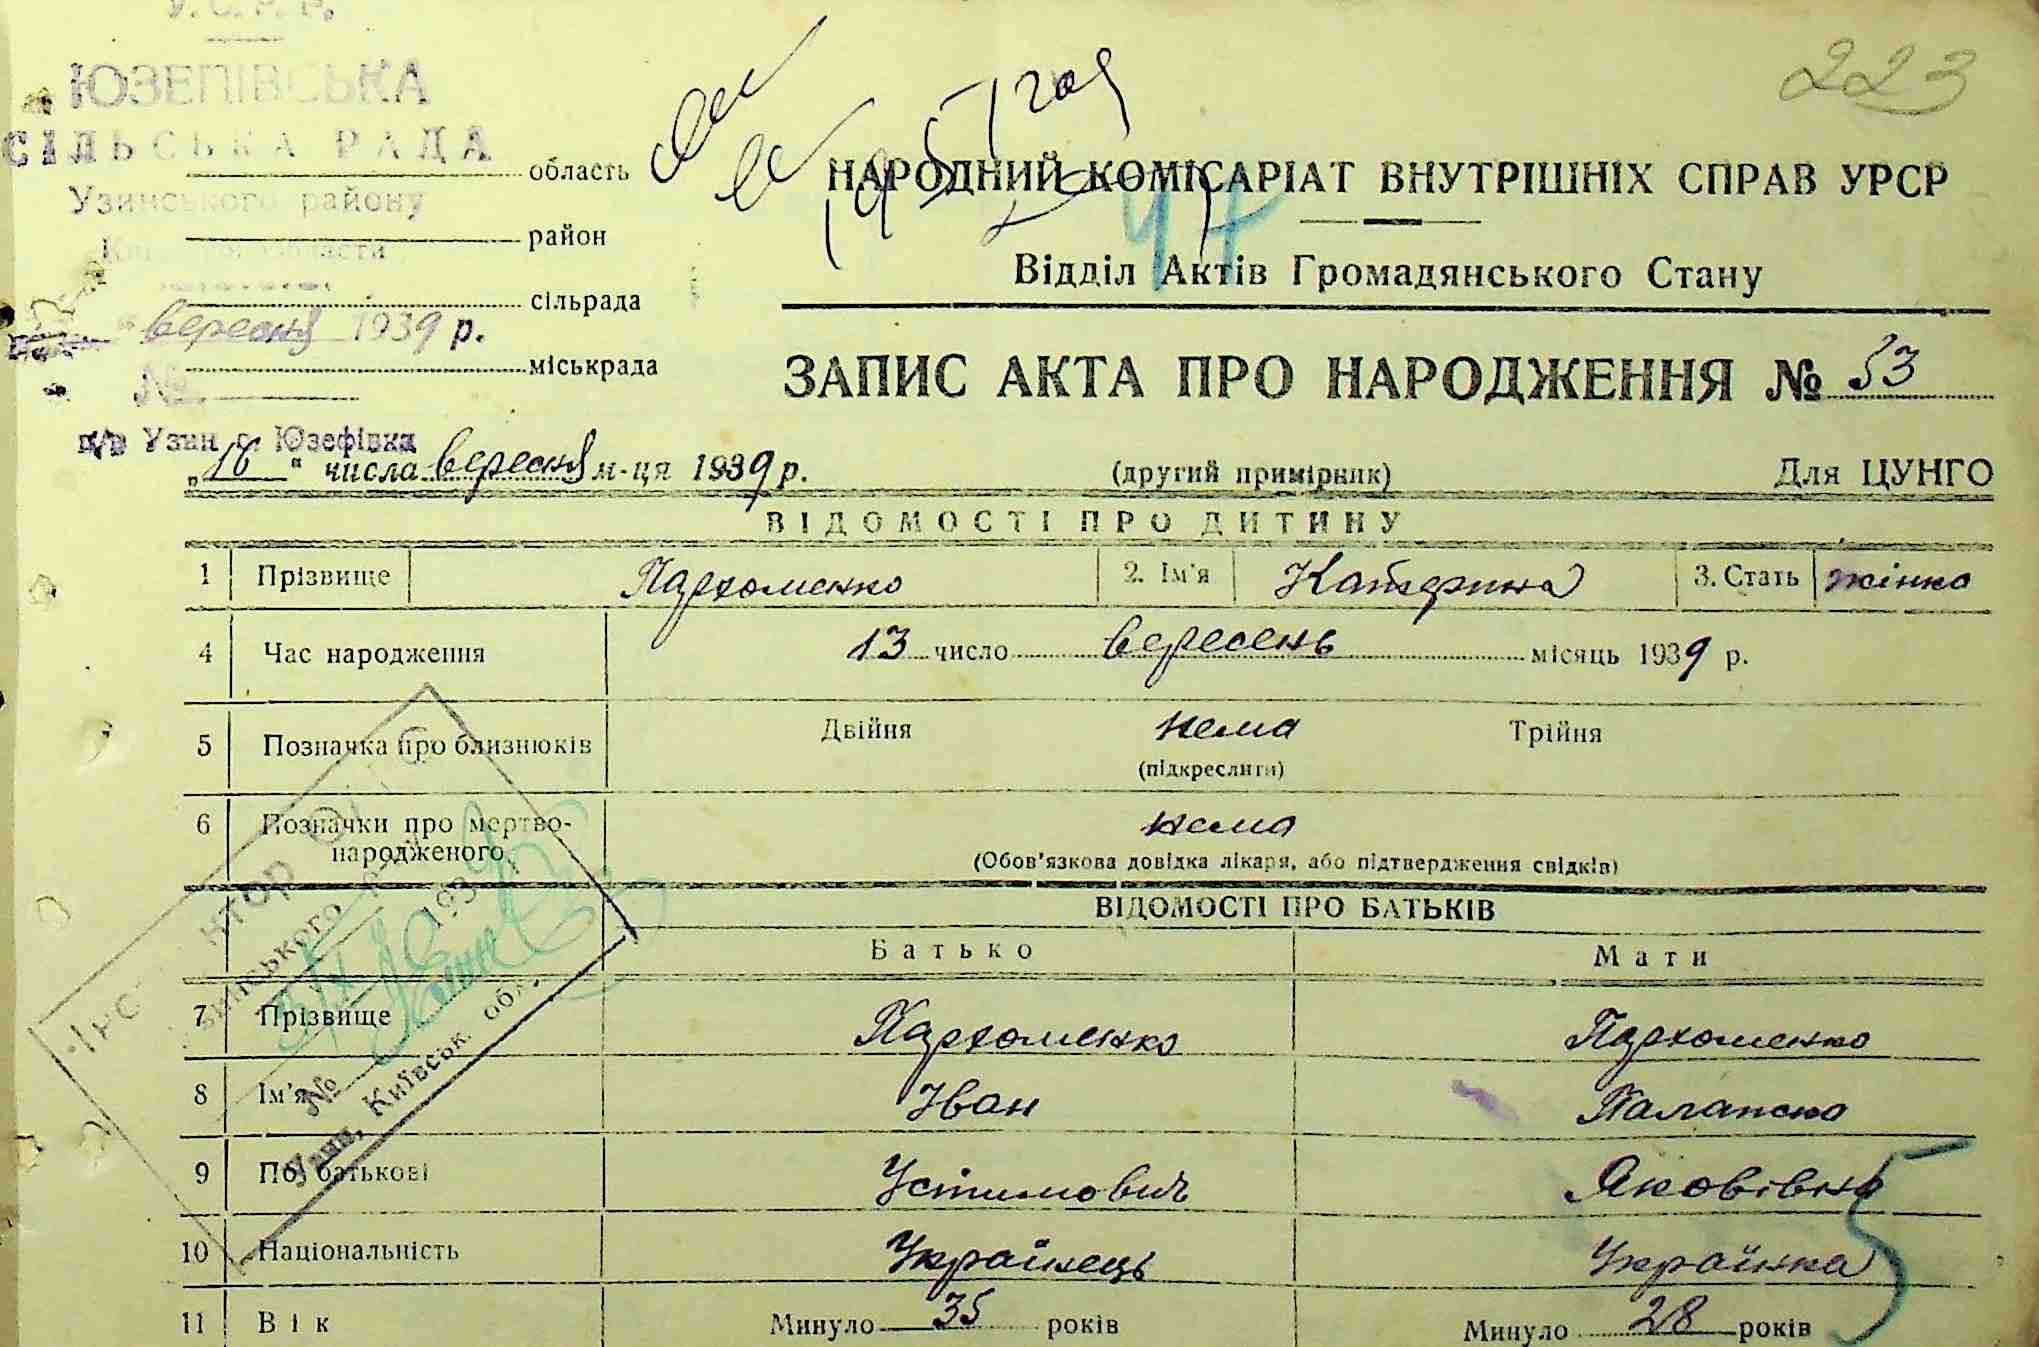 У. С. Р. Р.
ЮЗЕПІВСЬКА
СІЛЬСЬКА РАДА
область
Узинського району
район
області
сільрада
вересня 1939 р.
міськрада
№
п/в Узин с. Юзефівка
223
47
НАРОДНИЙ КОМІСАРІАТ ВНУТРІШНІХ СПРАВ УРСР
Відділ Актів Громадянського Стану
ЗАПИС АКТА ПРО НАРОДЖЕННЯ № 53
„16“ числа вересня м-ця 1939 р. (другий примірник) Для ЦУНГО
ВІДОМОСТІ ПРО ДИТИНУ
1 Прізвище Пархоменко 2. Ім'я Катерина 3. Стать жінка
4 Час народження 13 число вересень місяць 1939 р.
5 Позначка про близнюків Двійня нема Трійня
(підкреслити)
6 Позначки про мертво-
народженого нема
(Обов'язкова довідка лікаря, або підтвердження свідків)
ВІДОМОСТІ ПРО БАТЬКІВ
Батько Мати
7 Прізвище Пархоменко Пархоменко
8 Ім'я Іван
9 По батькові Устимович Яковівна
10 Національність Українець Українка
11 Вік Минуло 35 років Минуло 28 років
193
№
Узин, Київськ. обл.
5